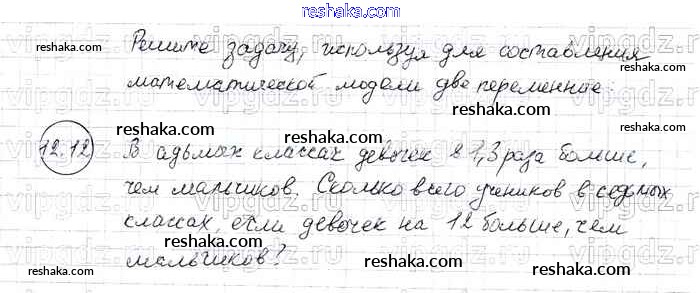 reshaka.com
Решите задачу, используя для составления
математической модели две переменные.
reshaka.com
reshaka.com reshaka.com
12.12 В адьмых классах девочек в 1,3 раза больше,
чем мальчиков. Сколько всего учеников в седьмых
reshaka.com
классах, если девочек на 12 больше, чем
reshaka.com reshaka.com
мальчиков?
reshaka.com
vipgdz.ru